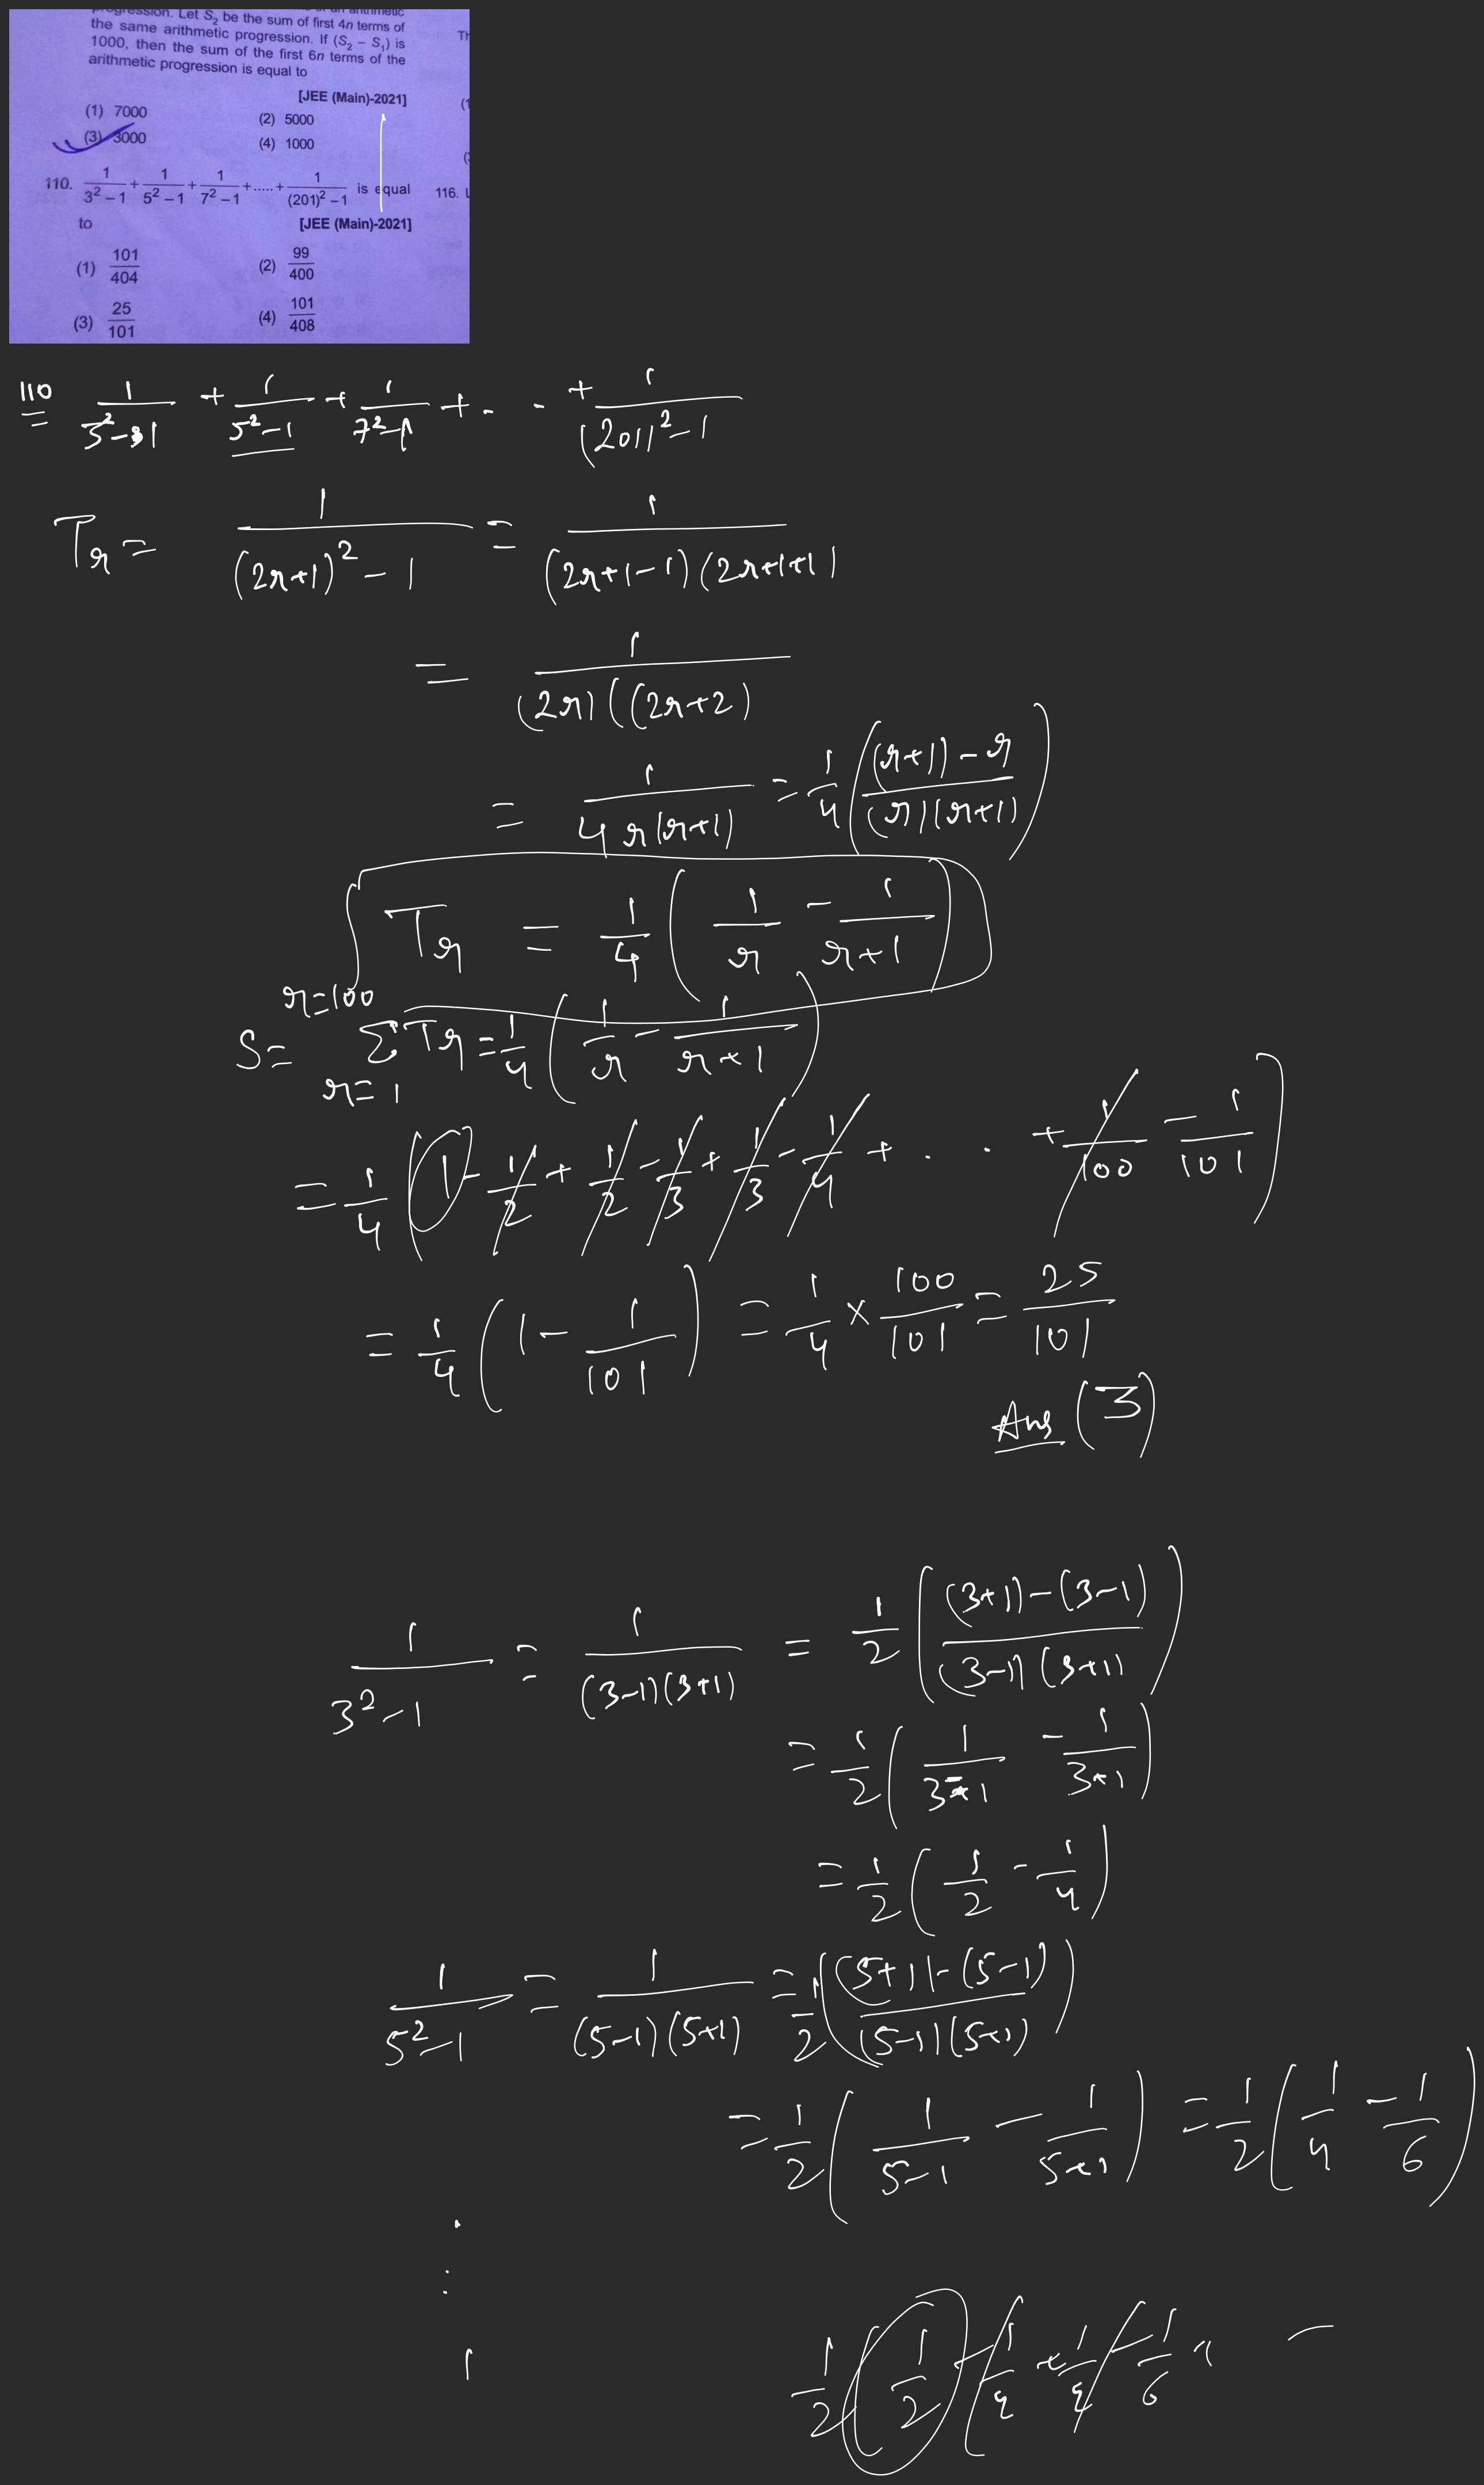 progression. Let S₂ be the sum of first 4n terms of
the same arithmetic progression. If (S₂ – S₁) is
1000, then the sum of the first 6n terms of the
arithmetic progression is equal to
[JEE (Main)-2021]
(1) 7000 (2) 5000
(3) 3000 (4) 1000
110. 1/(3² – 1) + 1/(5² – 1) + 1/(7² – 1) + ..... + 1/((201)² – 1) is equal
116.
to [JEE (Main)-2021]
(1) 101/404 (2) 99/400
(3) 25/101 (4) 101/408
110 1/(3²-1) + 1/(5²-1) + 1/(7²-1) + - - + 1/((201)²-1)
Tr = 1/((2r+1)² - 1) = 1/((2r+1-1)(2r+1+1))
= 1/((2r)((2r+2))
= 1/(4r(r+1)) = 1/4 (((r+1)-r)/((r)(r+1)))
Tr = 1/4 (1/r - 1/(r+1))
r=100
S = ΣTr = 1/4 (1/r - 1/(r+1))
r=1
= 1/4 (1 - 1/2 + 1/2 - 1/3 + 1/3 - 1/4 + . . + 1/100 - 1/101)
= 1/4 (1 - 1/101) = 1/4 × 100/101 = 25/101
Ans (3)
1/(3²-1) = 1/((3-1)(3+1)) = 1/2 (((3+1)-(3-1))/((3-1)(3+1)))
= 1/2 (1/(3-1) - 1/(3+1))
= 1/2 (1/2 - 1/4)
1/(5²-1) = 1/((5-1)(5+1)) = 1/2 (((5+1)-(5-1))/((5-1)(5+1)))
= 1/2 (1/(5-1) - 1/(5+1)) = 1/2 (1/4 - 1/6)
1/2 (1/2 - 1/4 + 1/4 - 1/6 + -